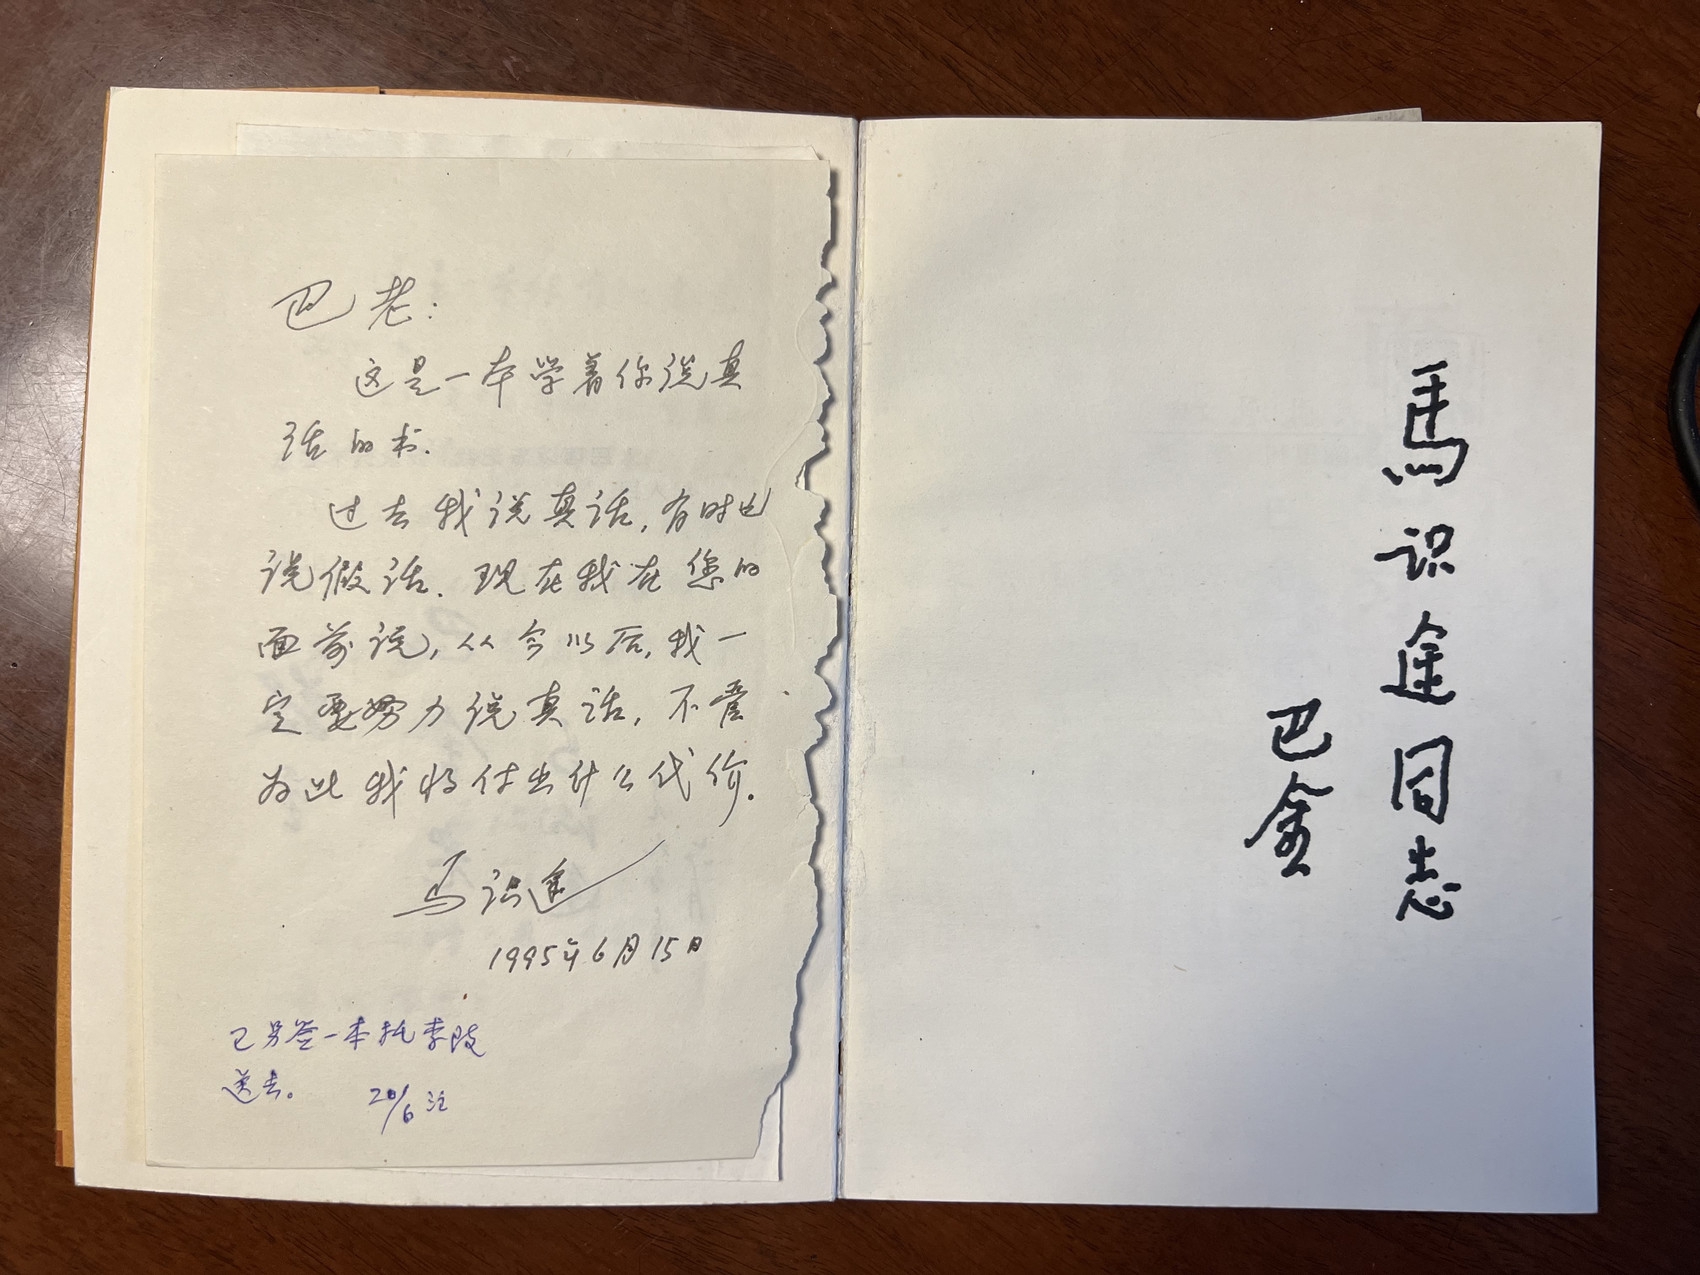 巴老：
这是一本学着你说真
话的书.
过去我说真话，有时也
说假话.现在我在您的
面前说，从今以后，我一
定要努力说真话，不管
为此我将付出什么代价.
马识途
1995年6月15日
已另签一本托李致
送去。
20/6 注
馬识途同志
巴金